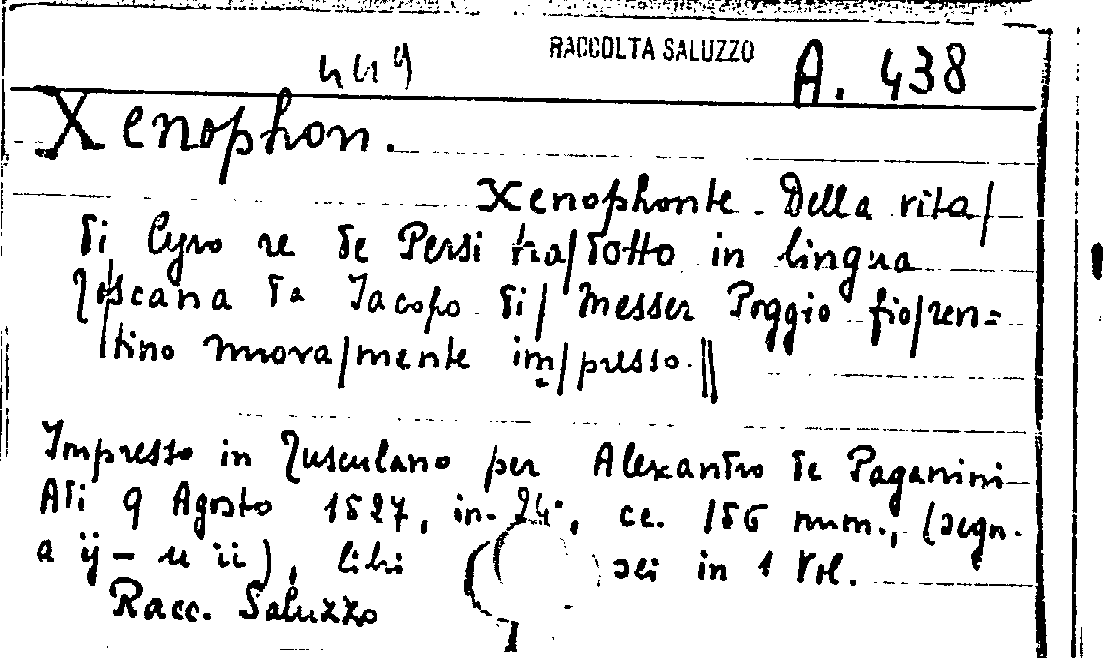 449 RACCOLTA SALUZZO A. 438
Xenophon.
Xenophonte. Della vita/
di Cyro re de Persi tra/dotto in lingua
Toscana da Iacopo di/ Messer Poggio fio/ren=
/tino nuova/mente im/presso.||
Impresso in Tusculano per Alexandro de Paganini
Adi 9 Agosto 1527, in-24°, cc. 156 num., (segn.
a ij – u ii), libri sei in 1 Vol.
Racc. Saluzzo